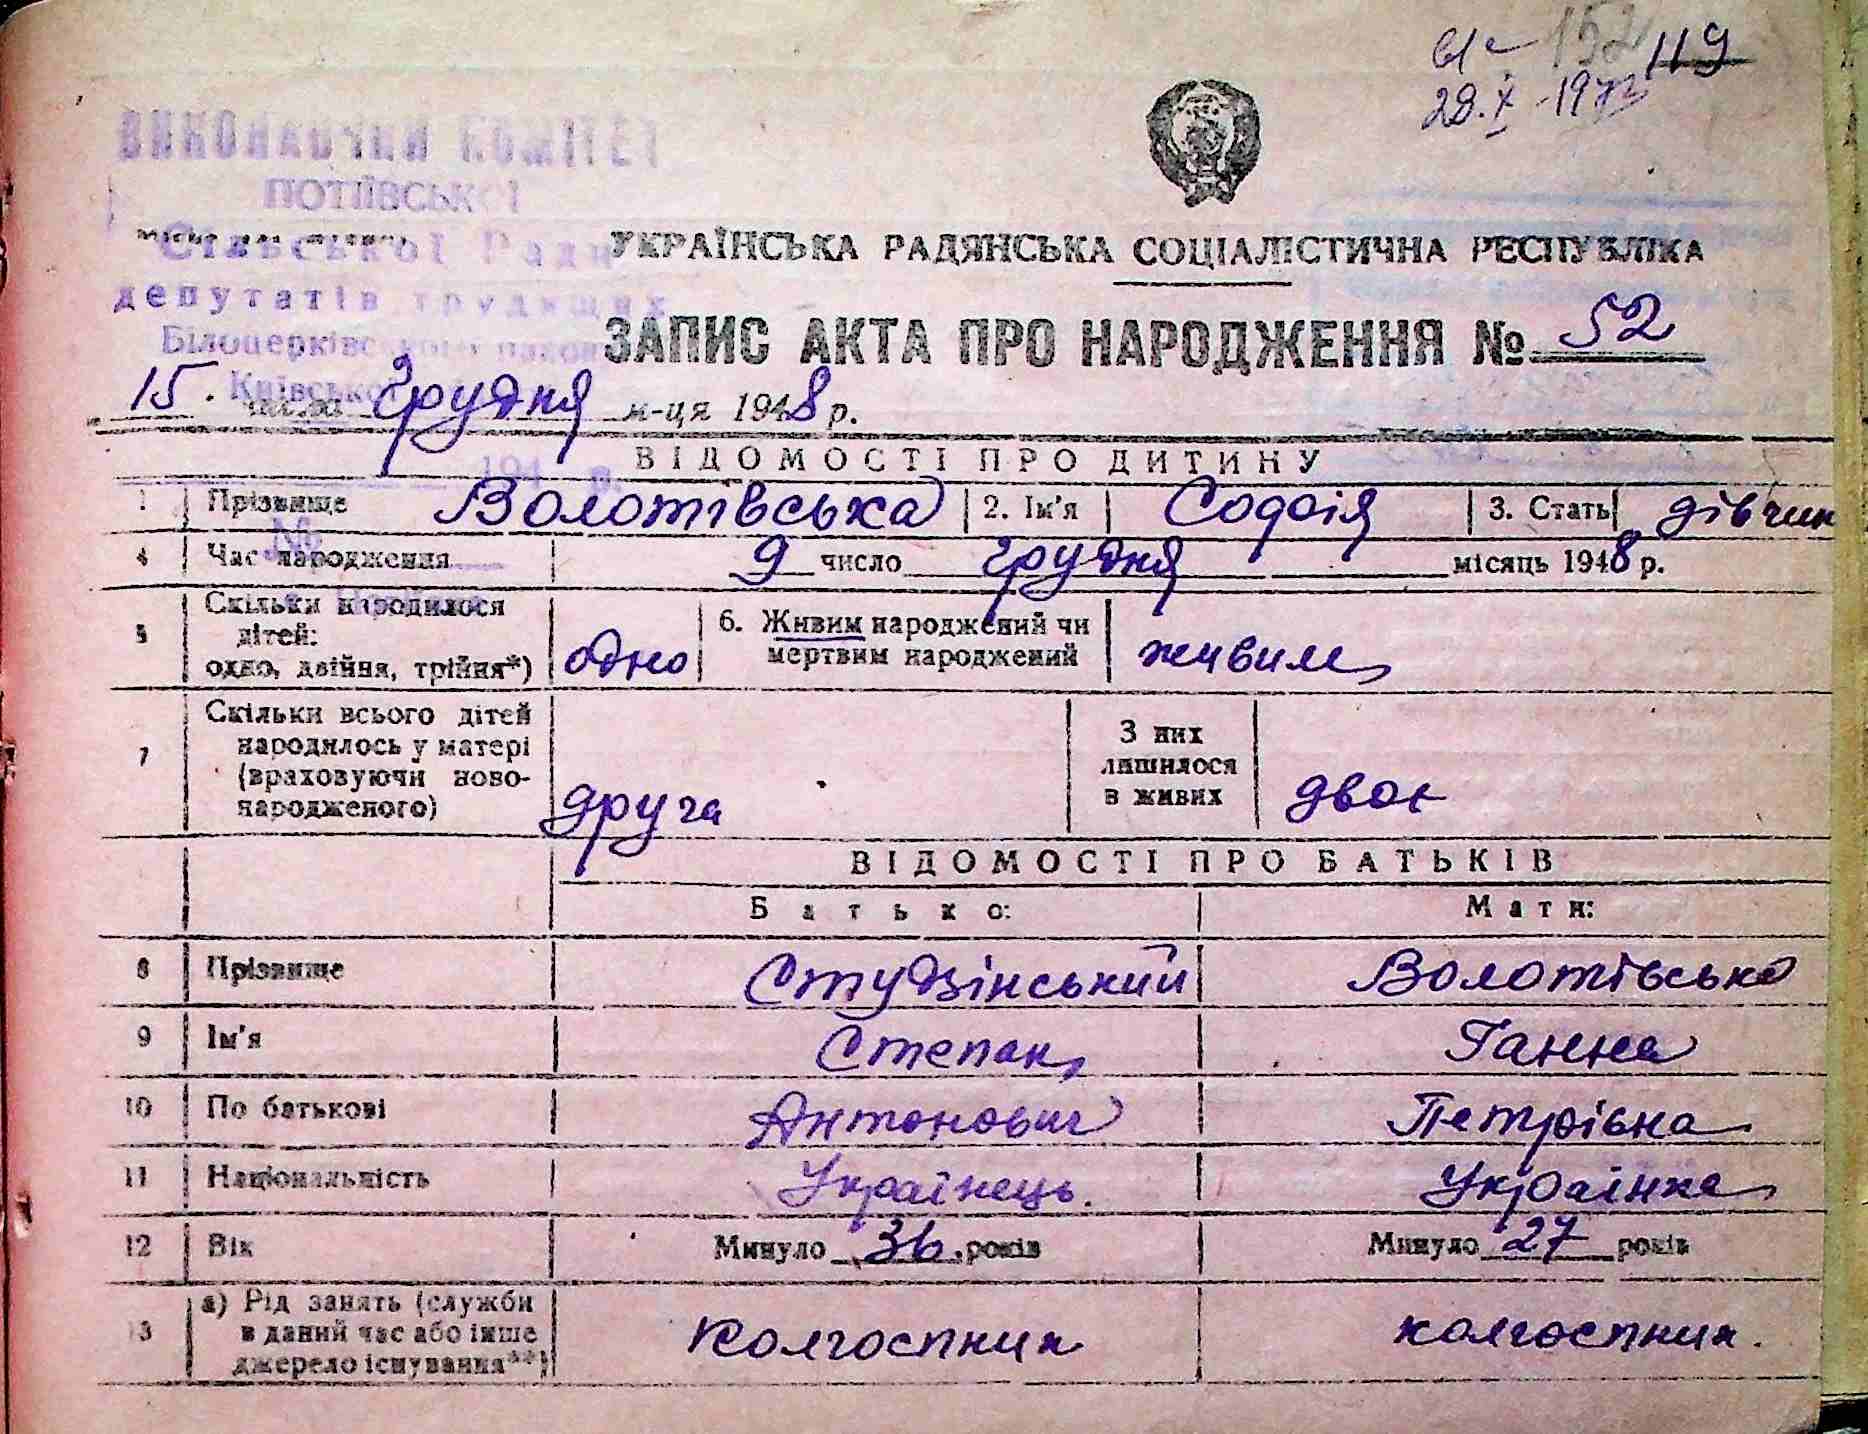 152 119
28.X -1973
ВИКОНАВЧИЙ КОМІТЕТ
ПОТІЇВСЬКОЇ
Сільської Ради
депутатів трудящих
Білоцерківського
Київської
УКРАЇНСЬКА РАДЯНСЬКА СОЦІАЛІСТИЧНА РЕСПУБЛІКА
ЗАПИС АКТА ПРО НАРОДЖЕННЯ № 52
15. числа грудня м-ця 1948 р.
194
№
ВІДОМОСТІ ПРО ДИТИНУ
1 Прізвище Волотівська 2. Ім'я Софія 3. Стать дівчин
4 Час народження 9 число грудня місяць 1948 р.
5 Скільки народилося дітей: одно, двійня, трійня*) одно 6. Живим народжений чи мертвим народжений живим
7 Скільки всього дітей народилось у матері (враховуючи ново-народженого) друга З них лишилося в живих двоє
ВІДОМОСТІ ПРО БАТЬКІВ
Батько: Мати:
8 Прізвище Студзінський Волотівська
9 Ім'я Степан Ганна
10 По батькові Антонович Петрівна
11 Національність Українець. Українка
12 Вік Минуло 36. років Минуло 27 років
13 а) Рід занять (служби в даний час або інше джерело існування**) Колгоспник колгоспник.